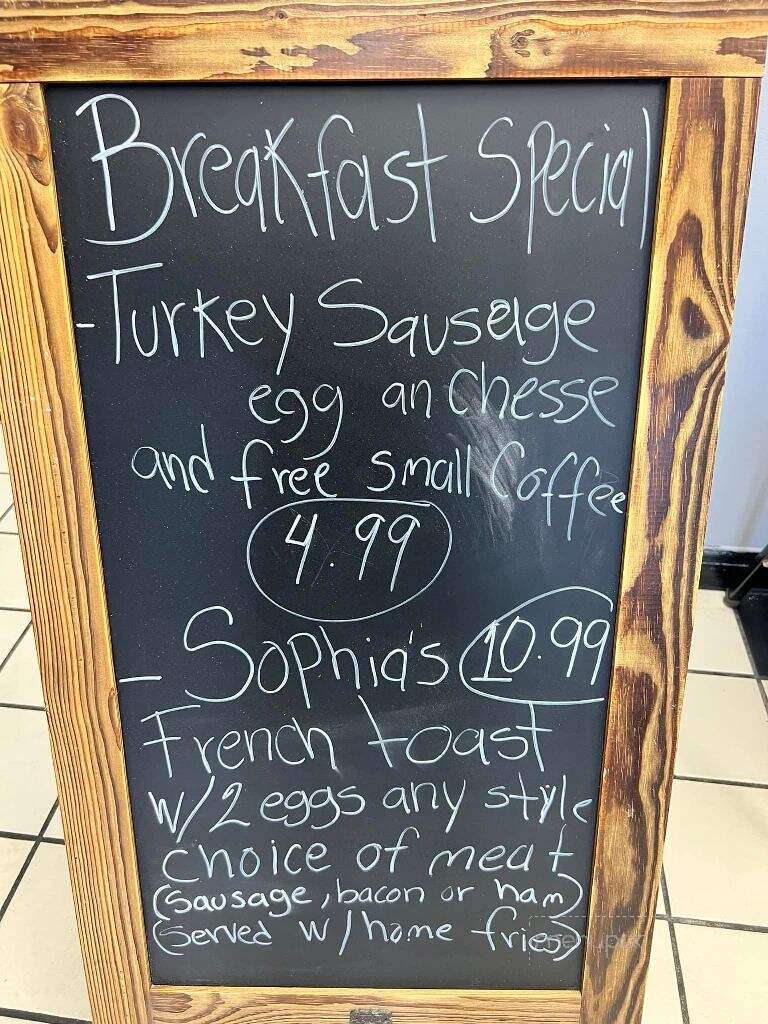 Breakfast Special
- Turkey Sausage
egg an Chesse
and free small Coffee
4.99
- Sophia's 10.99
French toast
w/2 eggs any style
choice of meat
(sausage, bacon or ham)
(served w/home fries)